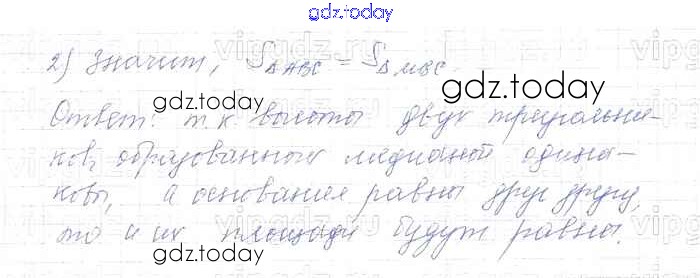 gdz.today
2) Значит, S∆ABC = S∆MBC.
gdz.today
gdz.today
Ответ: т.к высоты двух треугольни-
ков, образованных медианой одина-
ковы, а основания равны друг другу,
то и их площади будут равны.
gdz.today
gdz.today